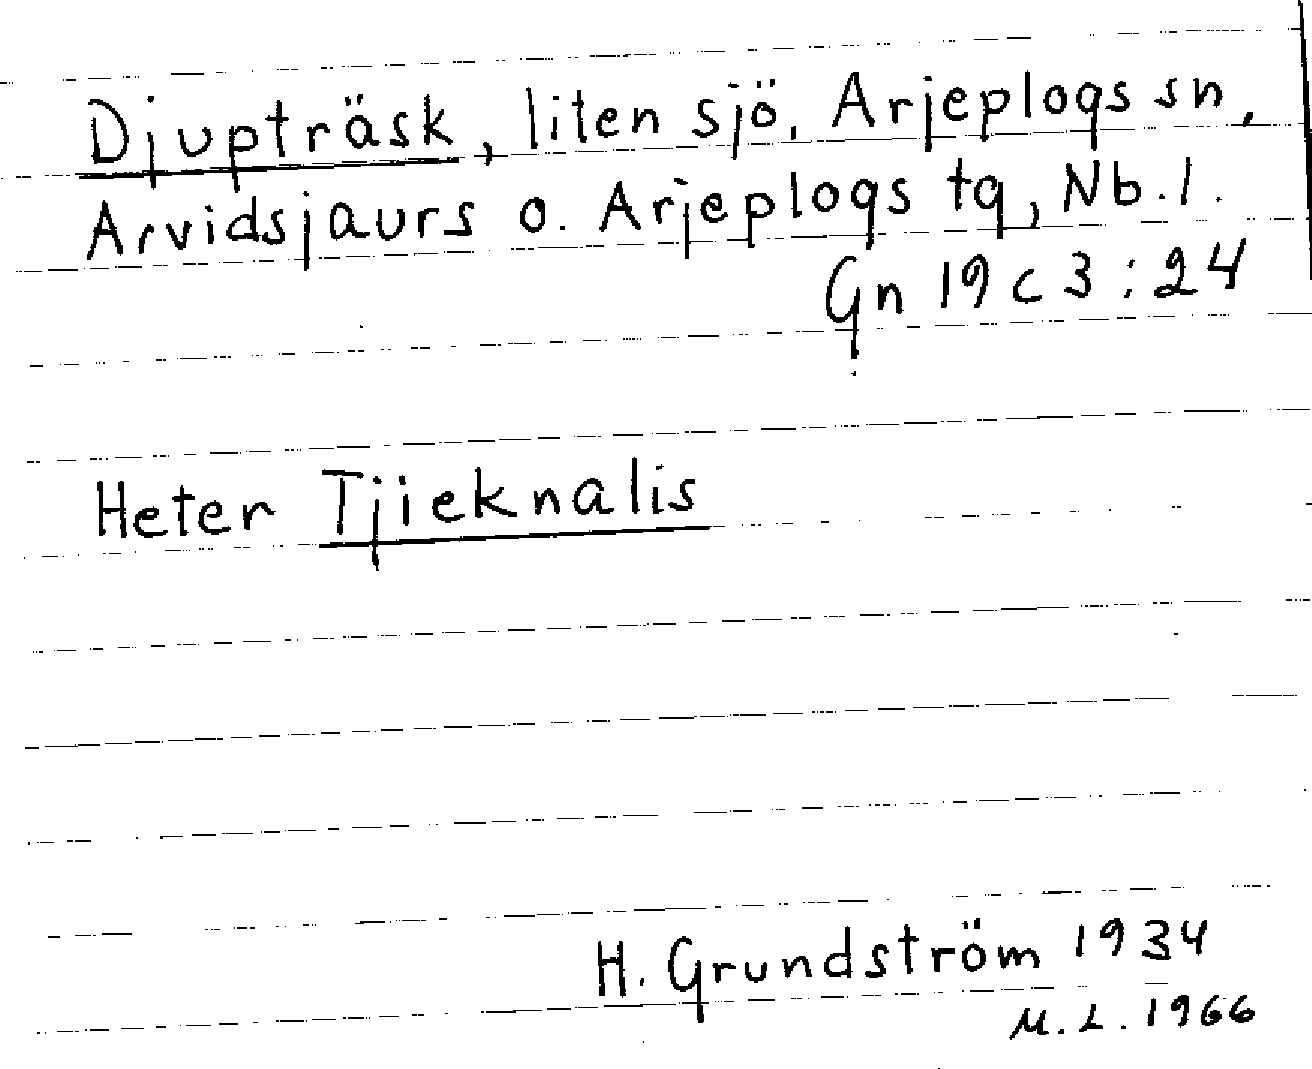 Djupträsk, liten sjö, Arjeplogs sn,
Arvidsjaurs o. Arjeplogs tg, Nb. l.
Gn 19 c 3:24
Heter Tjieknalis
H. Grundström 1934
M. L. 1966